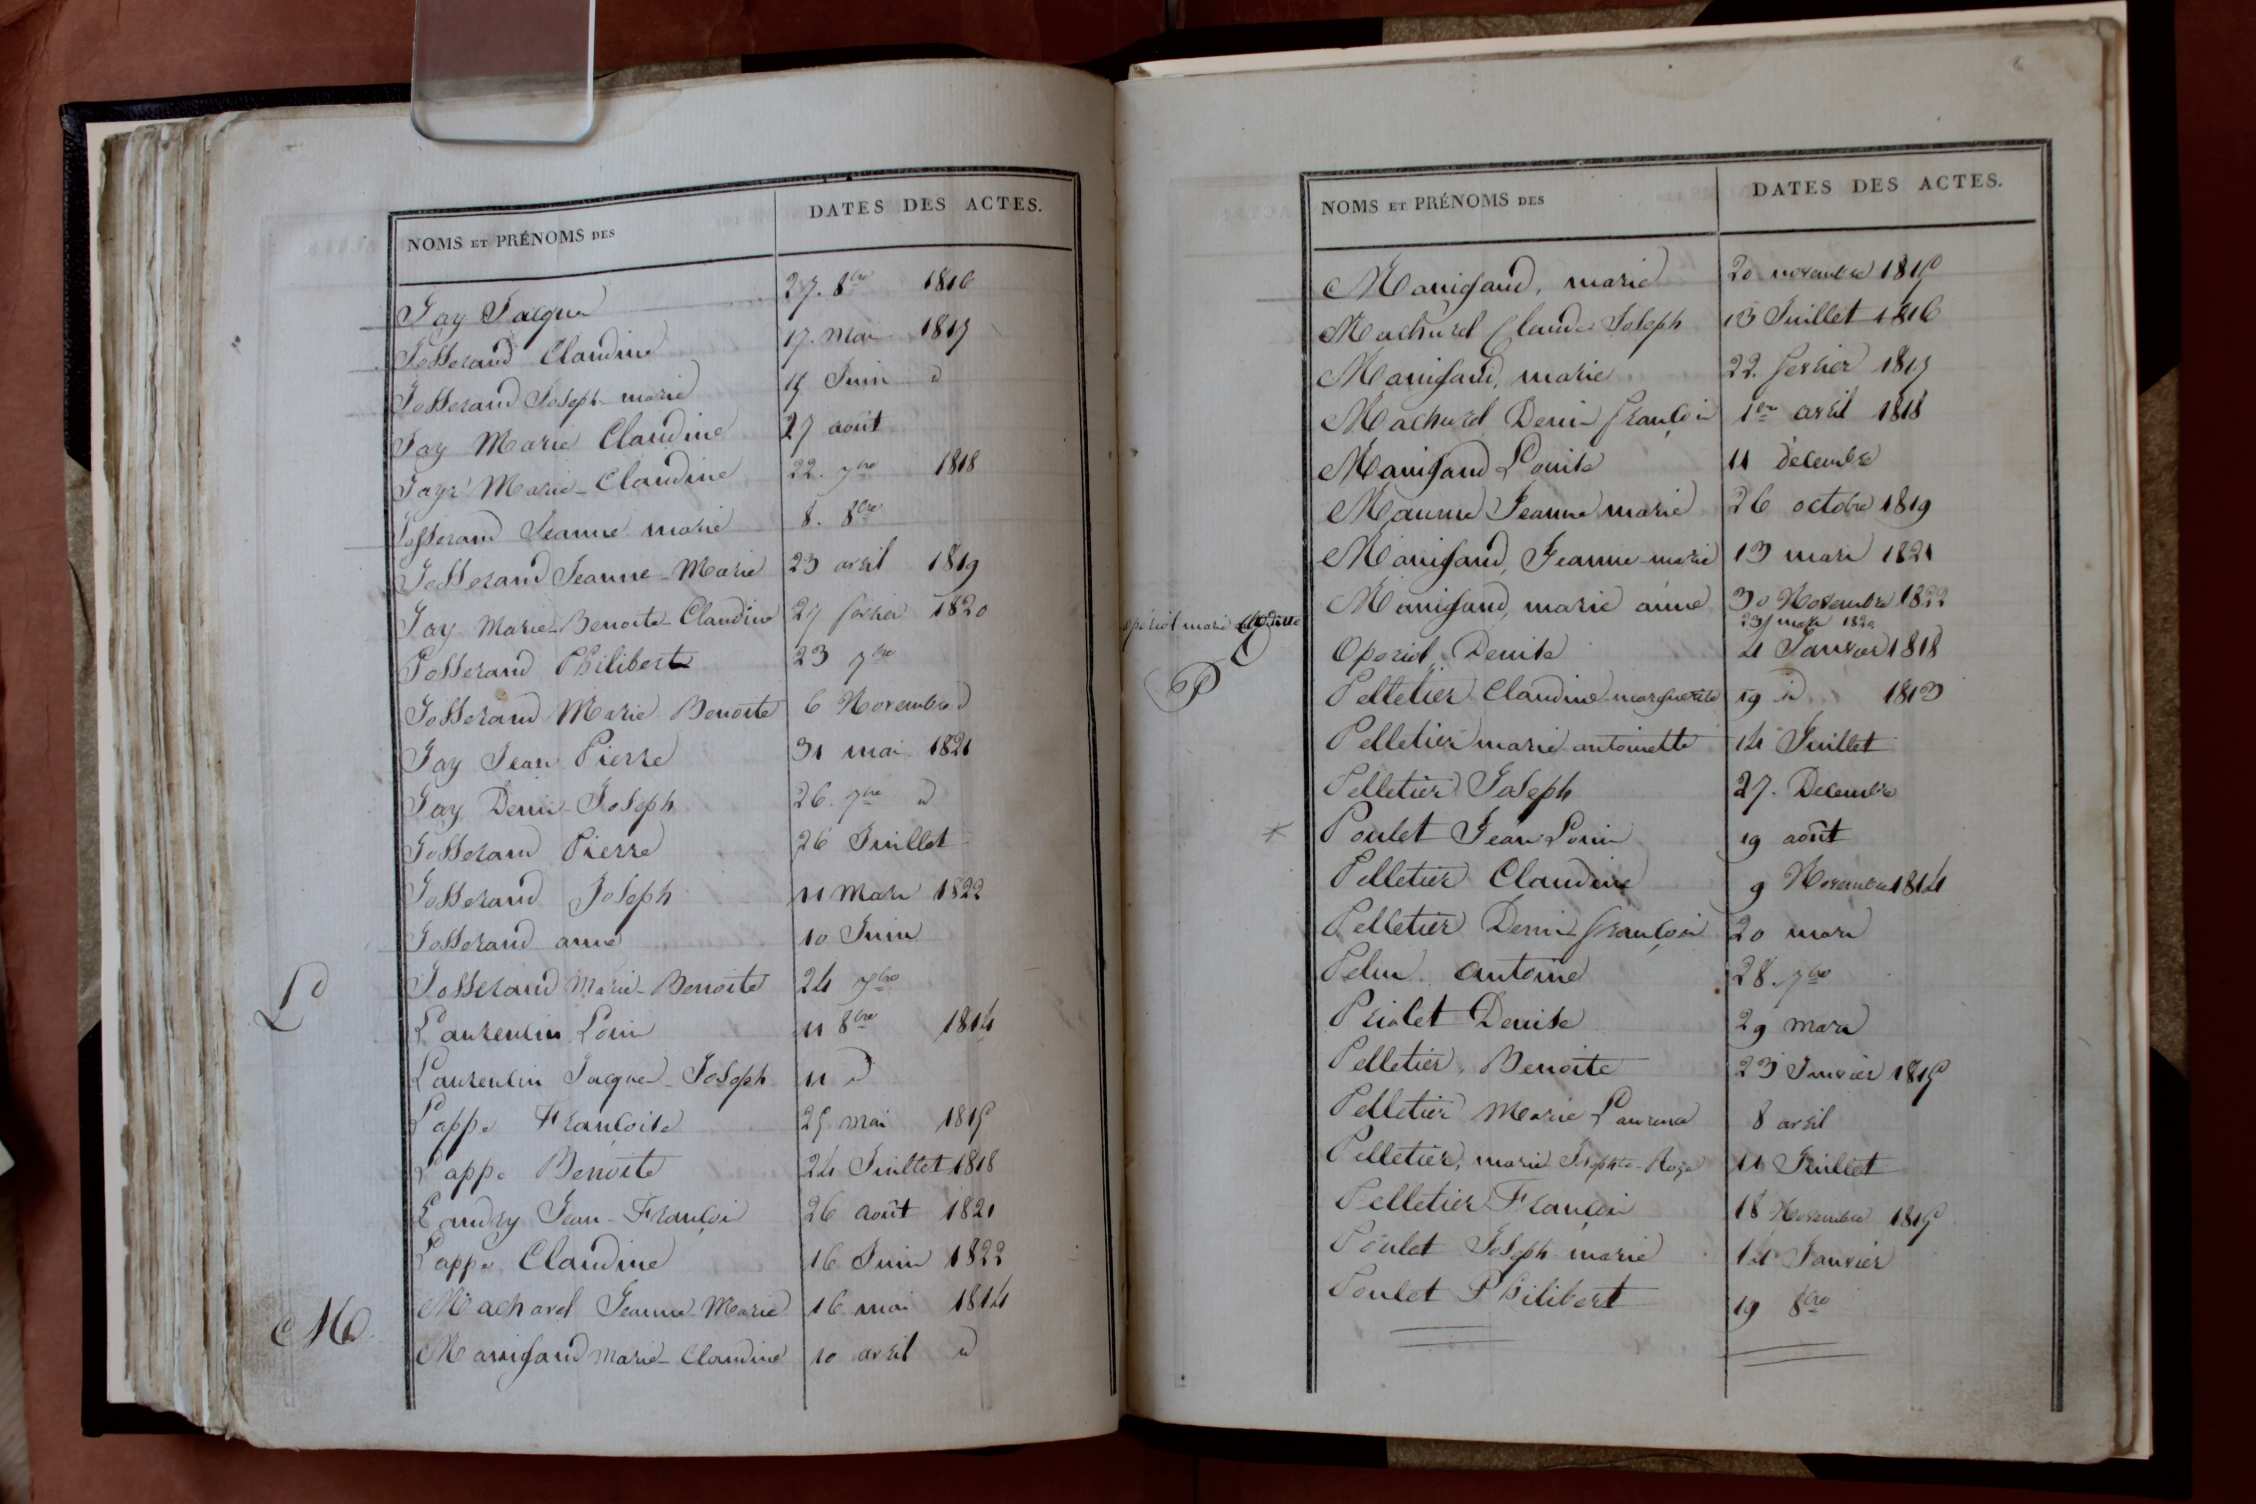 NOMS ET PRÉNOMS DES DATES DES ACTES.
Jay Jacques 27. 8bre 1816
Josserand Claudine 17. mai 1817
Josserand Joseph-marie 15 Juin d
Jay Marie Claudine 27 août
Jayr Marie-Claudine 22. 7bre 1818
Josserand Jeanne marie 8. 8bre
Josserand Jeanne-Marie 23 avril 1819
Jay Marie-Benoite-Claudine 27 février 1820
Josserand Philiberte 23 7bre
Josserand Marie Benoite 6 Novembre d
Jay Jean Pierre 31 mai 1821
Jay Denis-Joseph 26. 7bre d
Josserand Pierre 26 Juillet
Josserand Joseph 11 Mars 1822
Josserand anne 10 Juin
Josserand Marie-Benoite 24 7bre
L
Laurentin Louis 11 8bre 1814
Laurentin Jacques-Joseph 11 d
Lappe Françoise 25 mai 1815
Lappe Benoite 24 Juillet 1818
Landry Jean-François 26 août 1821
Lappe Claudine 16 Juin 1822
M
Machard Jeanne-Marie 16 mai 1814
Manigand Marie-Claudine 10 avril d
NOMS ET PRÉNOMS DES DATES DES ACTES.
Manigand, marie 20 novembre 1815
Machurel Claude Joseph 13 Juillet 1816
Manigand, marie 22. fevrier 1817
Machurel Denis françois 1er avril 1818
Manigand Louise 11 décembre
Maume Jeanne marie 26 octobre 1819
Manigand, Jeanne-marie 13 mars 1821
Manigand, marie anne 30 Novembre 1822
operiol marie 1820
Operiol, Denise 4 Janvier 1818
P
Pelletier Claudine marguerite 19 d 1813
Pelletier marie antoinette 14 Juillet
Pelletier Joseph 27. Decembre
Poulet Jean Louis 19 août
Pelletier Claudine 9 Novembre 1814
Pelletier Denis françois 20 mars
antoine 28. 7bre
Priolet Denise 29 mars
Pelletier, Benoite 23 Janvier 1815
Pelletier Marie Laurence 8 avril
Pelletier, marie Josephte-Roze 11 Juillet
Pelletier François 18 Novembre 1815
Poulet Joseph marie 14 Janvier
Poulet Philibert 19 8bre